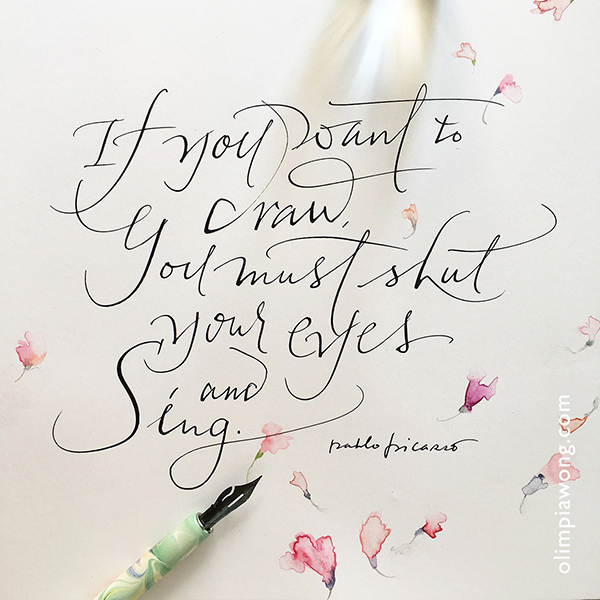 If you want to
draw,
You must shut
your eyes
and
Sing.
pablo picasso
olimpiawong.com